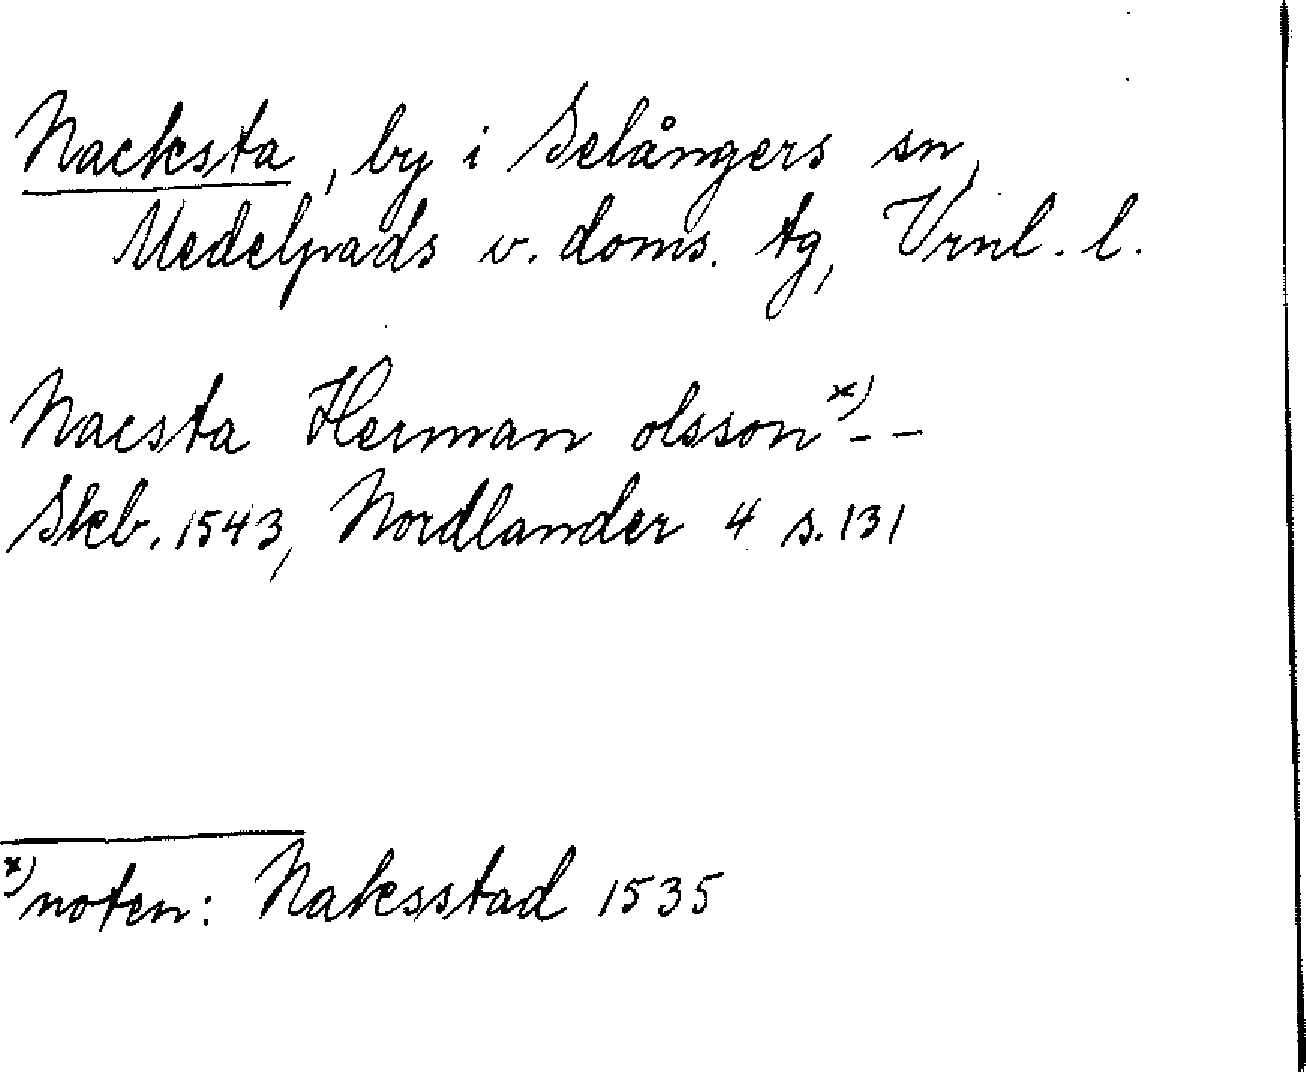 Nacksta, by i Selångers sn,
Medelpads v. doms. tg, Vrnl. l.
Nacsta Herman olsson x) - -
Skb. 1543, Nordlander 4 s. 131
x) noten: Naksstad 1535